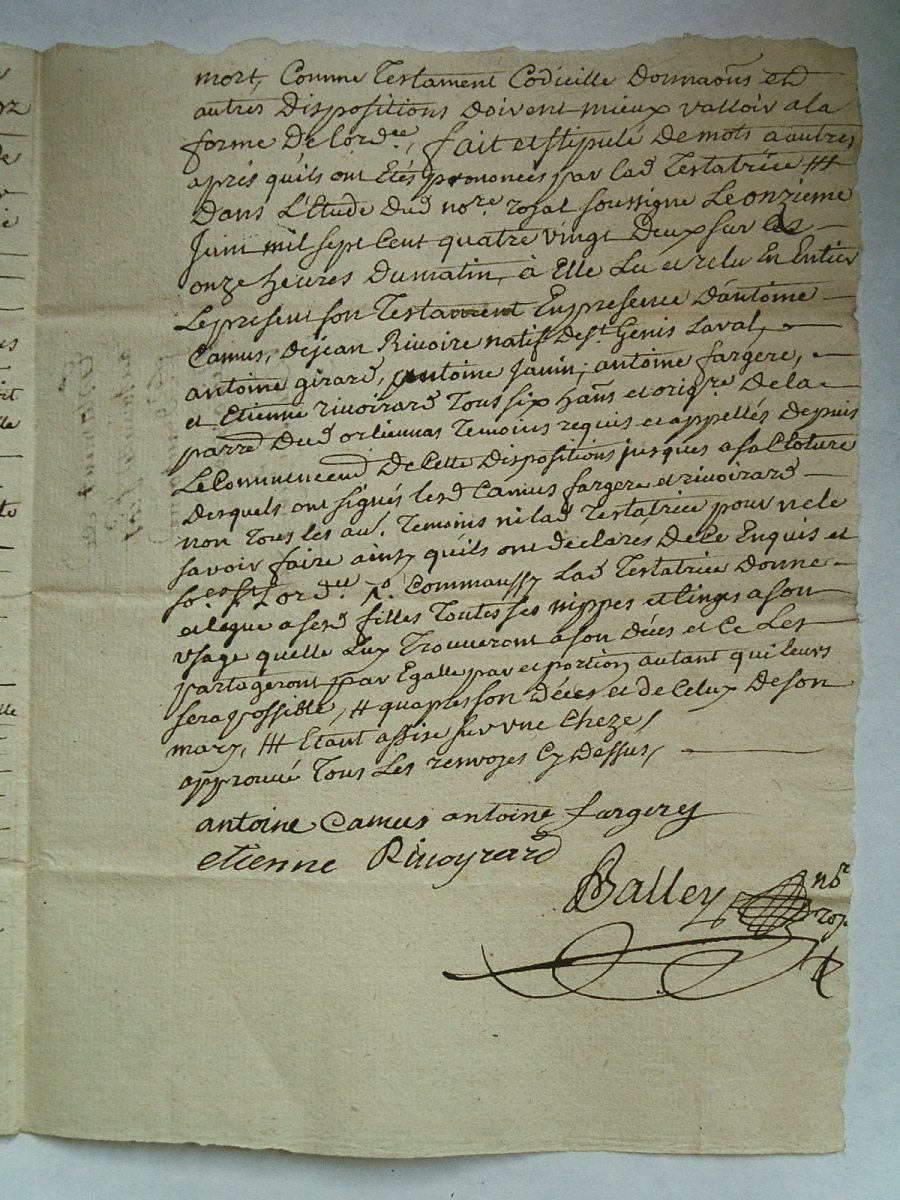 mort, Comme Testament Codicille Donnaõns et
autres Dispositions doivent mieux valloir a la
forme De lord.ce, fait et stipulé De mots a autres
après quils ont étés prononcés par lad Testatrice ///
Dans L'Etude dud no.re royal soussigné Le onzieme
Juin mil sept Cent quatre vingt Deux sur les
onze heures Du matin, à Elle Lu et relu En Entier
Le present son Testament En presence D'antoine
Camus, de jean Rivoire natif De s.t Genis Laval,
antoine girard, antoine Janin, antoine fargere,
et Etienne rivoirard Tous six hãns et orig.re De la
parr.e Dud orliennas Temoins requis et appellés Depuis
Le Commencem.t De Cette Dispositions jusques a sa Cloture
Desquels ont signés lesd Camus fargere et rivoirard
non Tous les au.t Temoins ni lad Testatrice pour ne le
savoir faire ainsy quils ont declarés De Ce Enquis et
lord.ce Comm aussy Lad Testatrice Donne
et legue a sesd filles Toutes ses nippes et linges a son
usage quelle Trouveront a son Déces et Ce Les
partageront par Egalle part et portion autant qui leurs
sera possible, # quapres son Décès et de Celux De son
mary, /// Etant assise sur une Cheze /
approuvé Tous Les renvoyes Cy Dessus,
antoine Camus antoine fargere
etienne Rivoyrard
Balley no.re
roy.